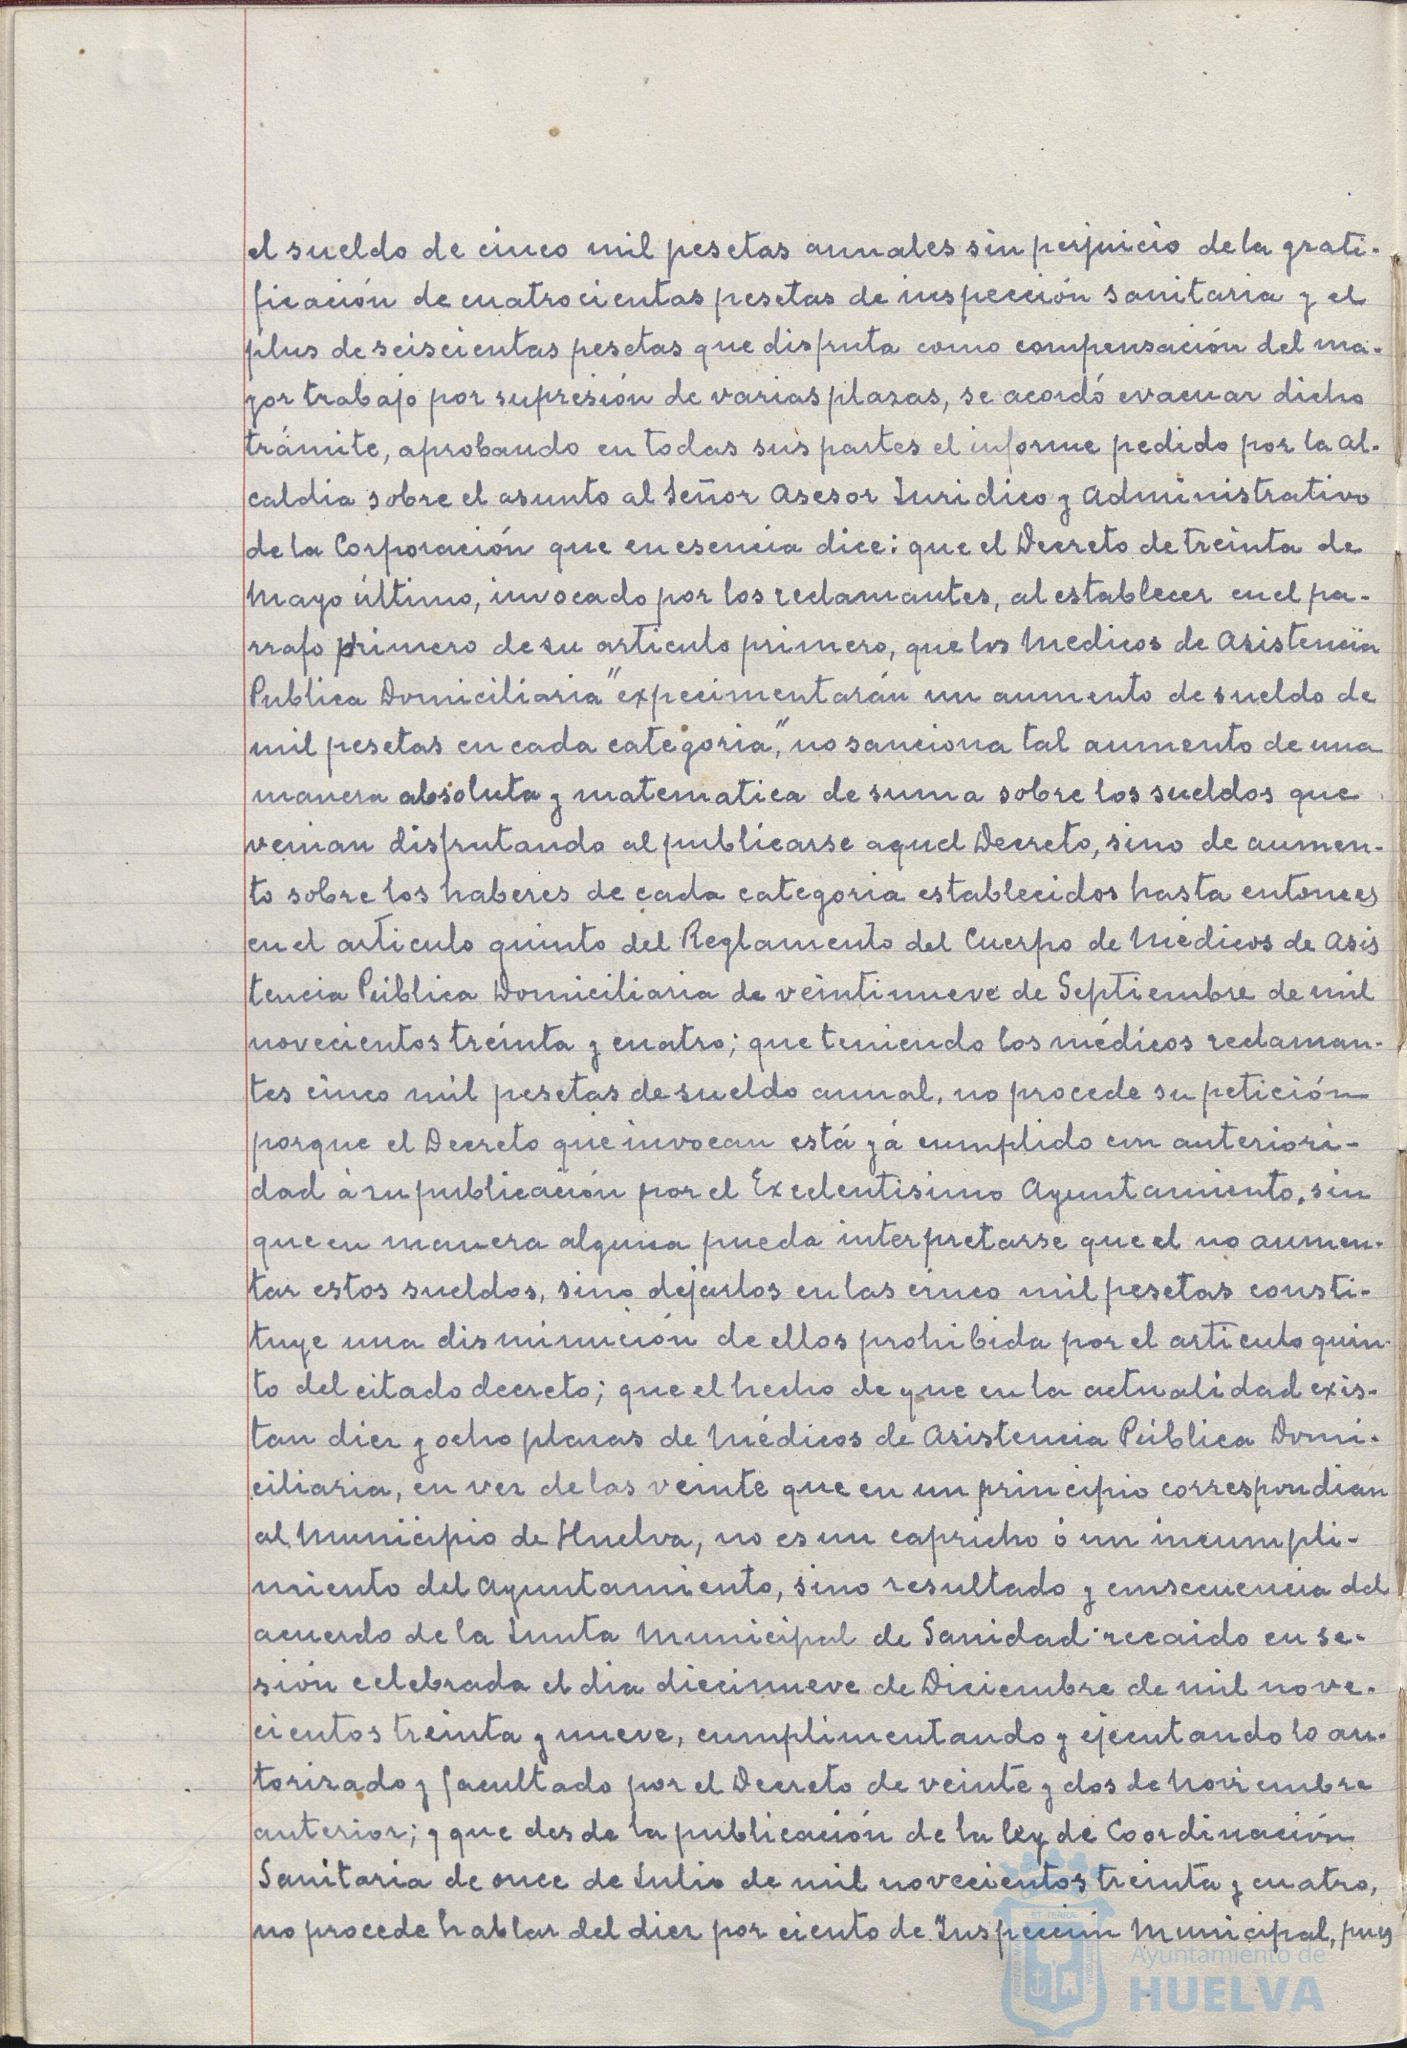 el sueldo de cinco mil pesetas anuales sin perjuicio de la grati-
ficación de cuatrocientas pesetas de inspección sanitaria y el
plus de seiscientas pesetas que disfruta como compensación del ma-
yor trabajo por supresión de varias plazas, se acordó evacuar dicho
trámite, aprobando en todas sus partes el informe pedido por la Al-
caldia sobre el asunto al Señor Asesor Juridico y Administrativo
de la Corporación que en esencia dice: que el Decreto de treinta de
Mayo último, invocado por los reclamantes, al establecer en el pa-
rrafo primero de su articulo primero, que los Medicos de Asistencia
Publica Domiciliaria "experimentarán un aumento de sueldo de
mil pesetas en cada categoria," no sanciona tal aumento de una
manera absoluta y matematica de suma sobre los sueldos que
venian disfrutando al publicarse aquel Decreto, sino de aumen-
to sobre los haberes de cada categoria establecidos hasta entonces
en el articulo quinto del Reglamento del Cuerpo de Médicos de Asis
tencia Pública Domiciliaria de veintinueve de Septiembre de mil
novecientos treinta y cuatro; que teniendo los médicos reclaman-
tes cinco mil pesetas de sueldo anual, no procede su petición
porque el Decreto que invocan está yá cumplido con anteriori-
dad á su publicación por el Excelentisimo Ayuntamiento, sin
que en manera alguna pueda interpretarse que el no aumen-
tar estos sueldos, sino dejarlos en las cinco mil pesetas consti-
tuye una disminución de ellos prohibida por el articulo quin-
to del citado decreto; que el hecho de que en la actualidad exis-
tan diez y ocho plazas de Médicos de Asistencia Pública Domi-
ciliaria, en vez de las veinte que en un principio correspondian
al Municipio de Huelva, no es un capricho ó un incumpli-
miento del Ayuntamiento, sino resultado y consecuencia del
acuerdo de la Junta Municipal de Sanidad recaido en se-
sión celebrada el dia diecinueve de Diciembre de mil nove-
cientos treinta y nueve, cumplimentando y ejecutando lo au-
torizado y facultado por el Decreto de veinte y dos de Noviembre
anterior; y que desde la publicación de la ley de Coordinación
Sanitaria de once de Julio de mil novecientos treinta y cuatro,
no procede hablar del diez por ciento de Inspección Municipal, pues
Ayuntamiento de
HUELVA